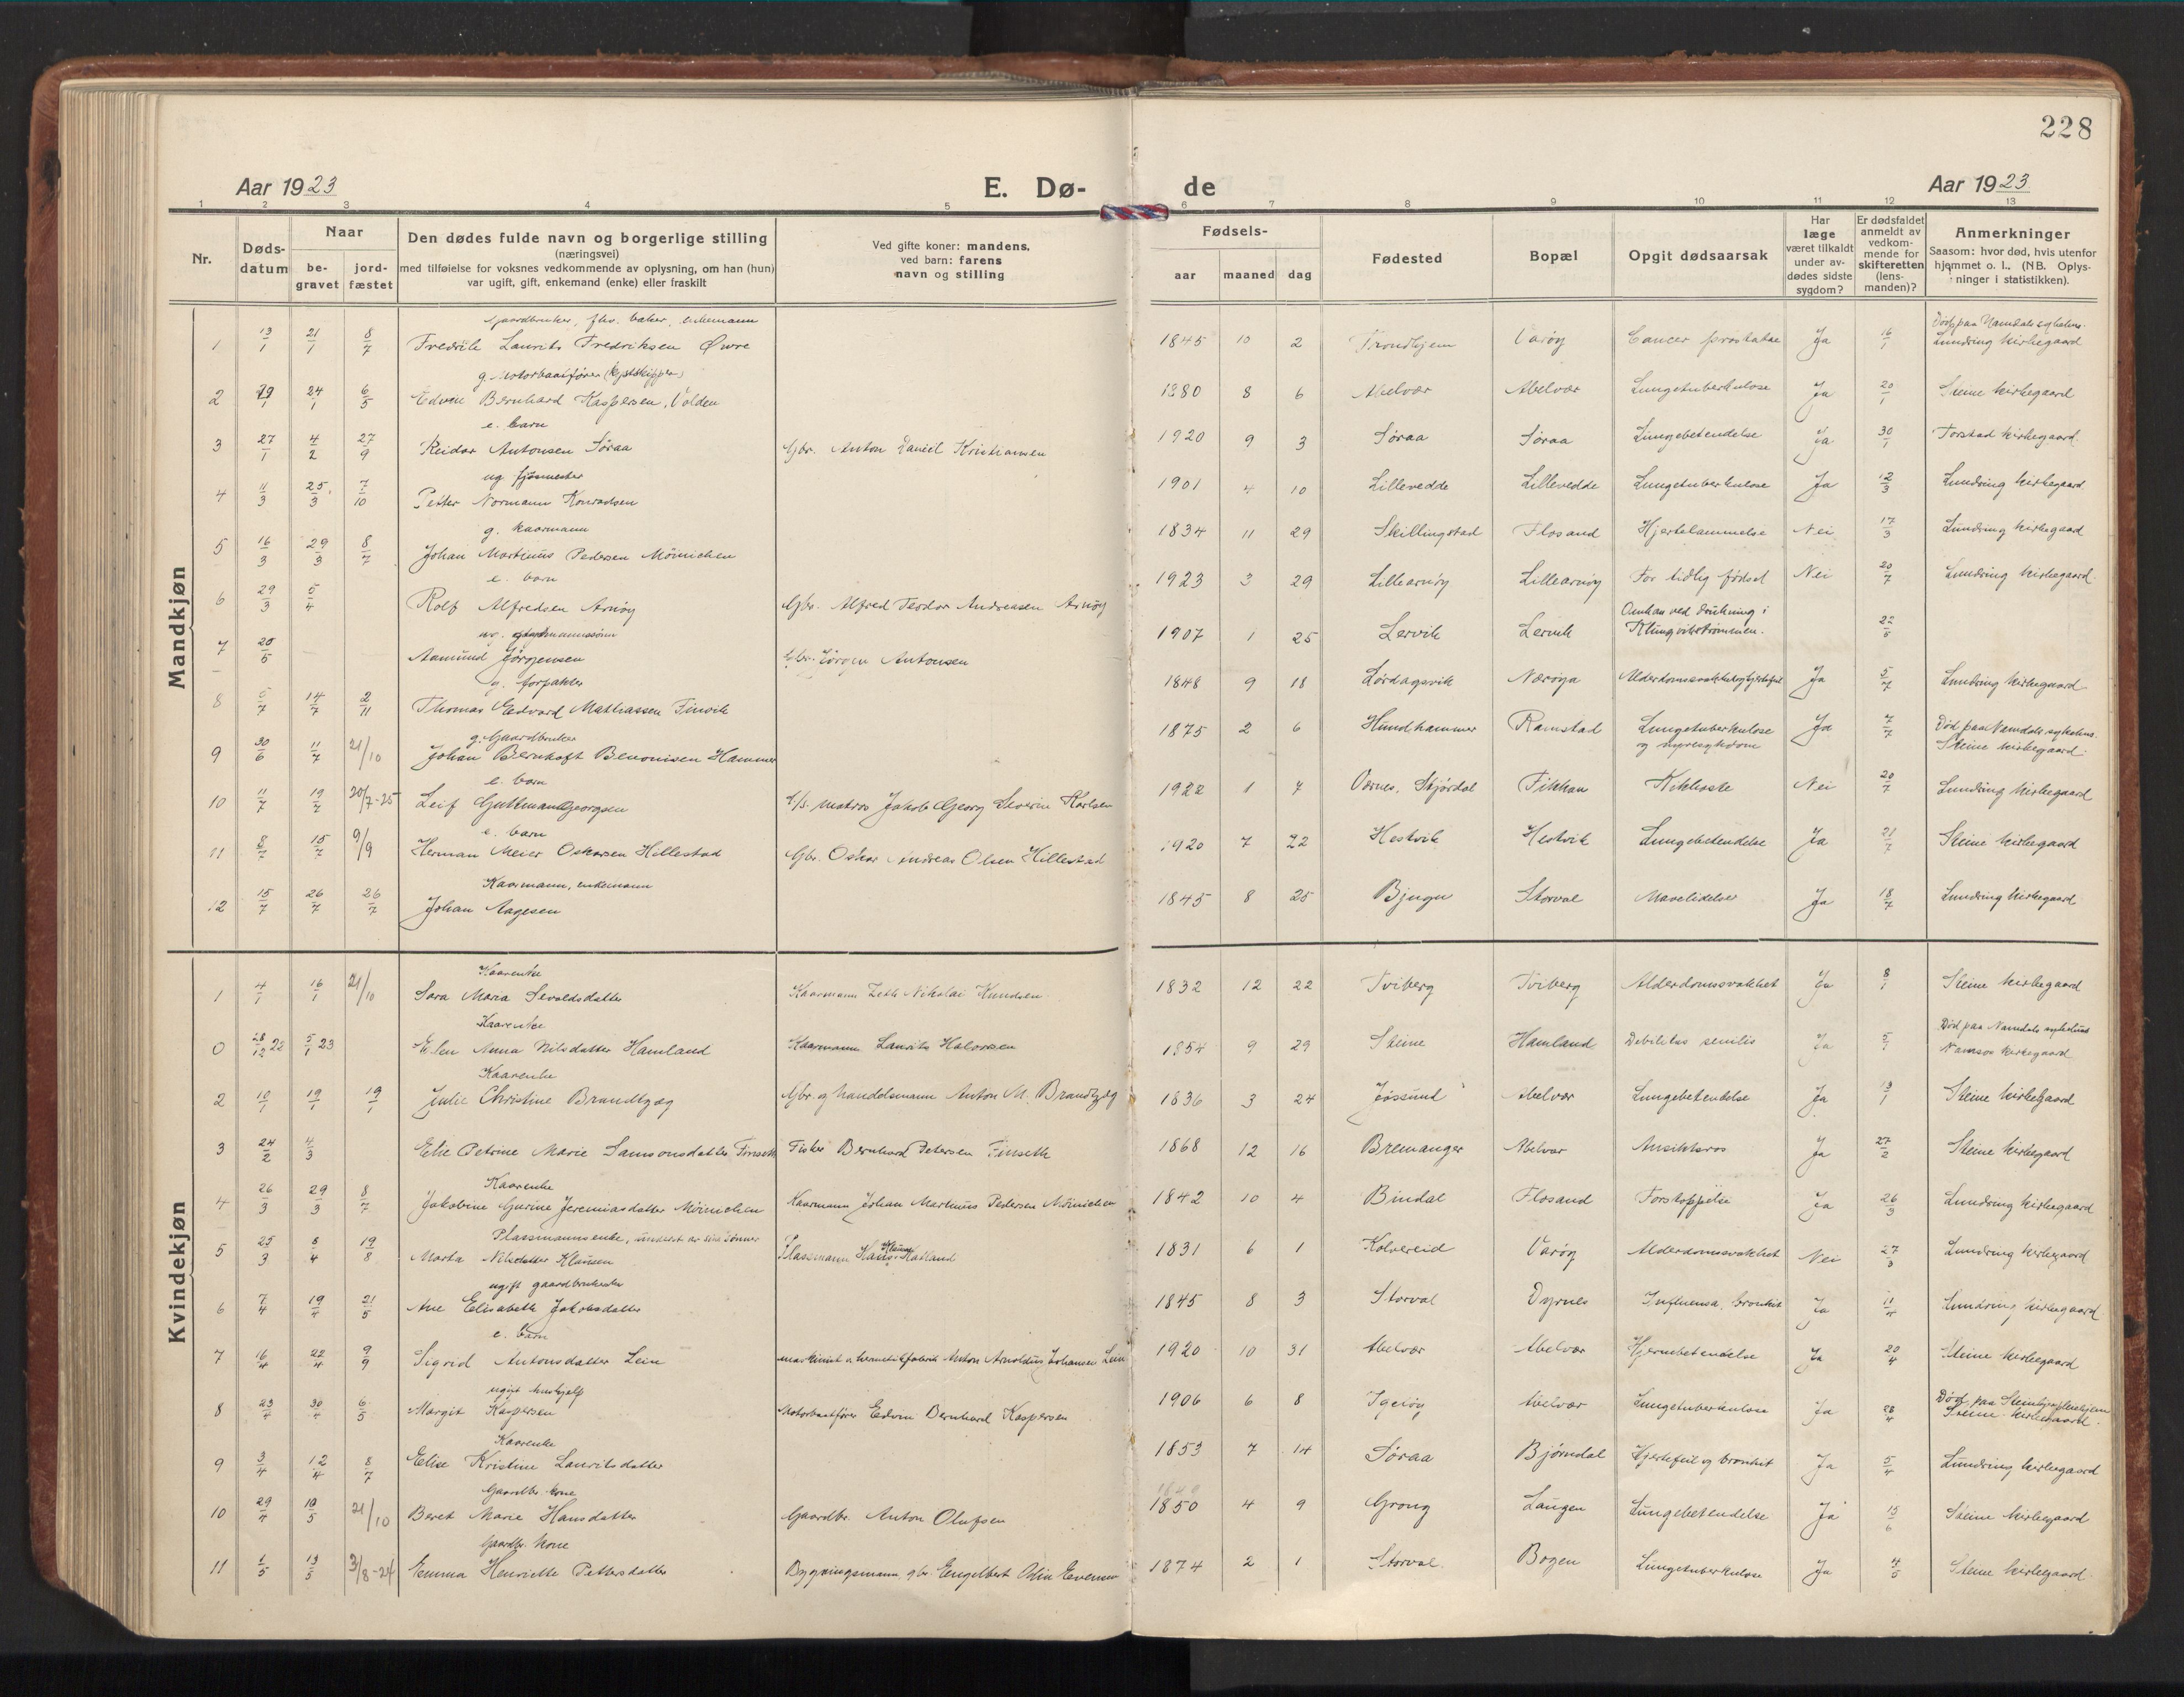 228
Aar 1923
E. Dø-
de
Aar 1923.
1 2 3 4 5 6 7 8 9 10 11 12 13
Nr.
Døds-
datum
Naar
be-
gravet
jord-
fæstet
Den dødes fulde navn og borgerlige stilling
(næringsvei)
med tilføielse for voksnes vedkommende av oplysning, om han (hun)
var ugift, gift, enkemand (enke) eller fraskilt
Ved gifte koner: mandens,
ved barn: farens
navn og stilling
Fødsels-
aar maaned dag
Fødested
Bopæl
Opgit dødsaarsak
Har
læge
været tilkaldt
under av-
dødes sidste
sygdom?
Er dødsfaldet
anmeldt av
vedkom-
mende for
skifteretten
(lens-
manden)?
Anmerkninger
Saasom: hvor død, hvis utenfor
hjemmet o. l., (NB. Oplys-
ninger i statistikken).
Mandkjøn
Gaardbruker, fhv. baker, enkemann Død paa Namdals sykehus.
1 13/1 21/1 8/7 Fredrik Laurits Fredriksen Øvre 1845 10 2 Trondhjem Varøy Cancer prostatae Ja 16/1 Lundring kirkegaard
g. Motorbaatfører (kystskipper)
2 19/1 24/1 6/5 Edvin Bernhard Kaspersen, Volden 1880 8 6 Abelvær Abelvær Lungetuberkulose Ja 20/1 Steine kirkegaard
e. barn
3 27/1 4/2 27/9 Reidar Antonsen Søraa Gbr. Anton Daniel Kristiansen 1920 9 3 Søraa Søraa Lungebetendelse Ja 30/1 Torstad kirkegaard
ug
4 11/3 25/3 7/10 Petter Normann Konradsen 1901 4 10 Lillevedde Lillevedde Lungetuberkulose Ja 12/3 Lundring kirkegaard
g. kaarmann
5 16/3 29/3 8/7 Johan Martinus Pedersen Mörnichen 1834 11 29 Skillingstad Flosand Hjertelammelse Nei 17/3 Lundring kirkegaard
e. barn
6 29/3 5/4 Rolf Alfredsen Arnøy Gbr. Alfred Teodor Andreasen Arnøy 1923 3 29 Lillearnøy Lillearnøy For tidlig fødsel Nei 20/7 Lundring kirkegaard
ug. Omkom ved drukning i
7 20/5 Aamund Jørgensen Gbr. Jørgen Antonsen 1907 1 25 Lervik Lervik Klungvikstrømmen. 22/5
g. forpakter
8 5/7 14/7 2/11 Thomas Edvard Mathiassen Finvik 1848 9 18 Lördagsvik Nærøya Alderdomssvakhet og hjertefeil Ja 5/7 Lundring kirkegaard
g. Gaardbruker Død paa Namdals sykehus.
9 30/6 11/7 21/10 Johan Bernhoft Benonisen Hammer 1875 2 6 Hundhammer Ramstad Lungetuberkulose og nyresykdom Ja 7/7 Steine kirkegaard
e. barn
10 11/7 19/7 20/7-25 Leif Guttman Georgsen matros Jakob Georg Severin Karlsen 1922 1 7 Værnes, Stjørdal Fikkan Kikhoste Nei 20/7 Lundring kirkegaard
e. barn
11 8/7 15/7 9/9 Herman Meier Oskarsen Hillestad Gbr. Oskar Andreas Olsen Hillestad 1920 7 22 Hestvik Hestvik Lungebetendelse Ja 21/7 Steine kirkegaard
Kaarmann, enkemann
12 15/7 26/7 26/7 Johan Aagesen 1845 8 25 Bjugn Storval Mavelidelser Ja 18/7 Lundring kirkegaard
Kvindekjøn
Kaarenke
1 4/1 16/1 21/10 Sara Maria Sevaldsdatter Kaarmann Zeth Nikolai Knudsen 1832 12 22 Tviberg Tviberg Alderdomssvakhet Ja 8/1 Steine kirkegaard
Kaarenke Død paa Namdals sykehus
0 28/12 22 5/1 23 Elen Anna Nilsdatter Hamland Kaarmann Laurits Halvorsen 1854 9 29 Steine Hamland Debilitas senilis Ja 5/1 Namsos kirkegaard
Kaarenke
2 10/1 19/1 19/1 Julie Christine Brandtzæg Gbr. og handelsmann Anton M. Brandtzæg 1836 3 24 Jøssund Abelvær Lungebetendelse Ja 13/1 Steine kirkegaard
3 24/2 4/3 Elie Petrine Marie Samsonsdatter Finseth Fisker Bernhard Petersen Finseth 1868 12 16 Bremanger Abelvær Ansiktsros Ja 27/2 Steine kirkegaard
Kaarenke
4 26/3 29/3 8/7 Jakobine Gurine Jeremiasdatter Mörnichen Kaarmann Johan Martinus Pedersen Mörnichen 1842 10 4 Bindal Flosand Forstoppelse Ja 26/3 Lundring kirkegaard
Plassmannsenke, underst. av sine sønner
5 25/3 8/4 19/8 Marta Nilsdatter Klausen Plassmann Hans Klausen Hatland 1831 6 1 Kolvereid Varøy Alderdomssvakhet Nei 27/3 Lundring kirkegaard
ugift gaardbrukerske
6 7/4 19/4 21/5 Ane Elisabeth Jakobsdatter 1845 8 3 Storval Dyrnes Influensa, bronkit Ja 11/4 Lundring kirkegaard
e. barn
7 16/4 22/4 9/9 Sigrid Antonsdatter Lein maskinist v. hermetikfabrik Anton Arnoldus Johansen Lein 1920 10 31 Abelvær Abelvær Hjernebetendelse Ja 20/4 Steine kirkegaard
ugift hushjelp Død paa
8 23/4 30/4 6/5 Margit Kaspersen Motorbaatfører Edvin Bernhard Kaspersen 1906 6 8 Igerøy Abelvær Lungetuberkulose Ja 28/4 Steine kirkegaard.
Kaarenke
9 3/4 12/4 8/7 Elise Kristine Lauritsdatter 1853 7 14 Søraa Bjørndal Hjertefeil og bronkit Ja 5/4 Lundring kirkegaard
Gaardbr. kone
10 29/4 10/5 21/10 Beret Marie Hansdatter Gaardbr. Anton Olufsen 1850 4 9 Grong Laugen Lungebetendelse Ja 15/6 Steine kirkegaard
Gaardbr. kone
11 1/5 13/5 3/8-24 Emma Henriette Pettersdatter Bygningsmann, gbr. Engelbert Odin Evensen 1874 2 1 Storval. Bogen Lungetuberkulose Ja 4/5 Steine kirkegaard